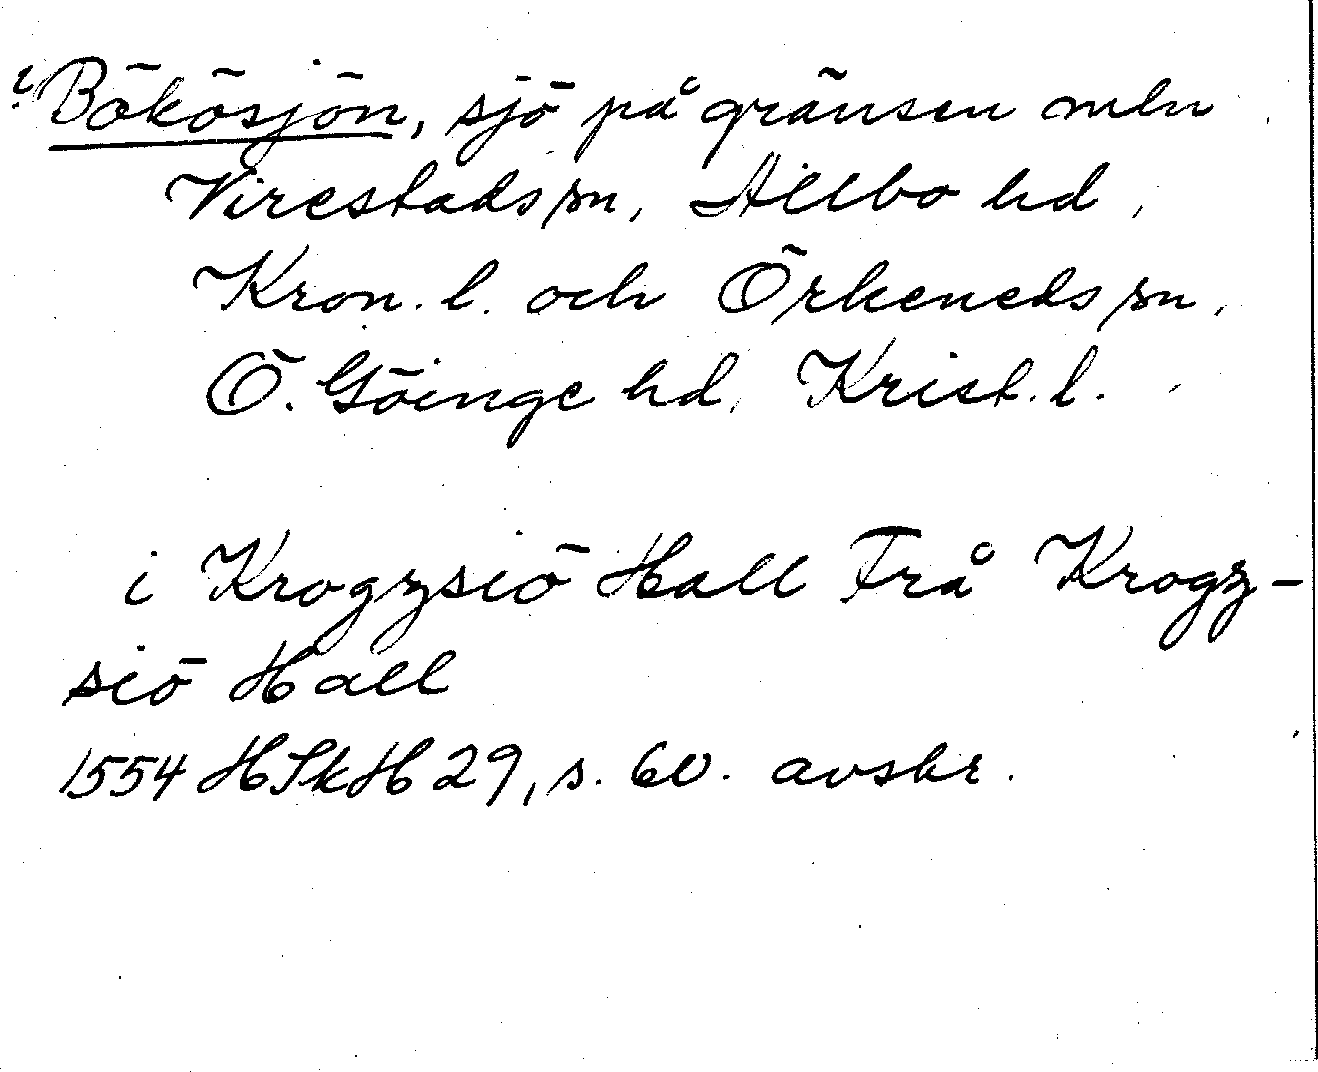 ?Bökösjön, sjö på gränsen mln
Virestads sn, Allbo hd,
Kron. l. och Örkeneds sn,
Ö. Göinge hd, Krist. l.
i Krogzsiö Hall Frå Krogz-
siö Hall
1554 HSkH 29, s. 60. avskr.